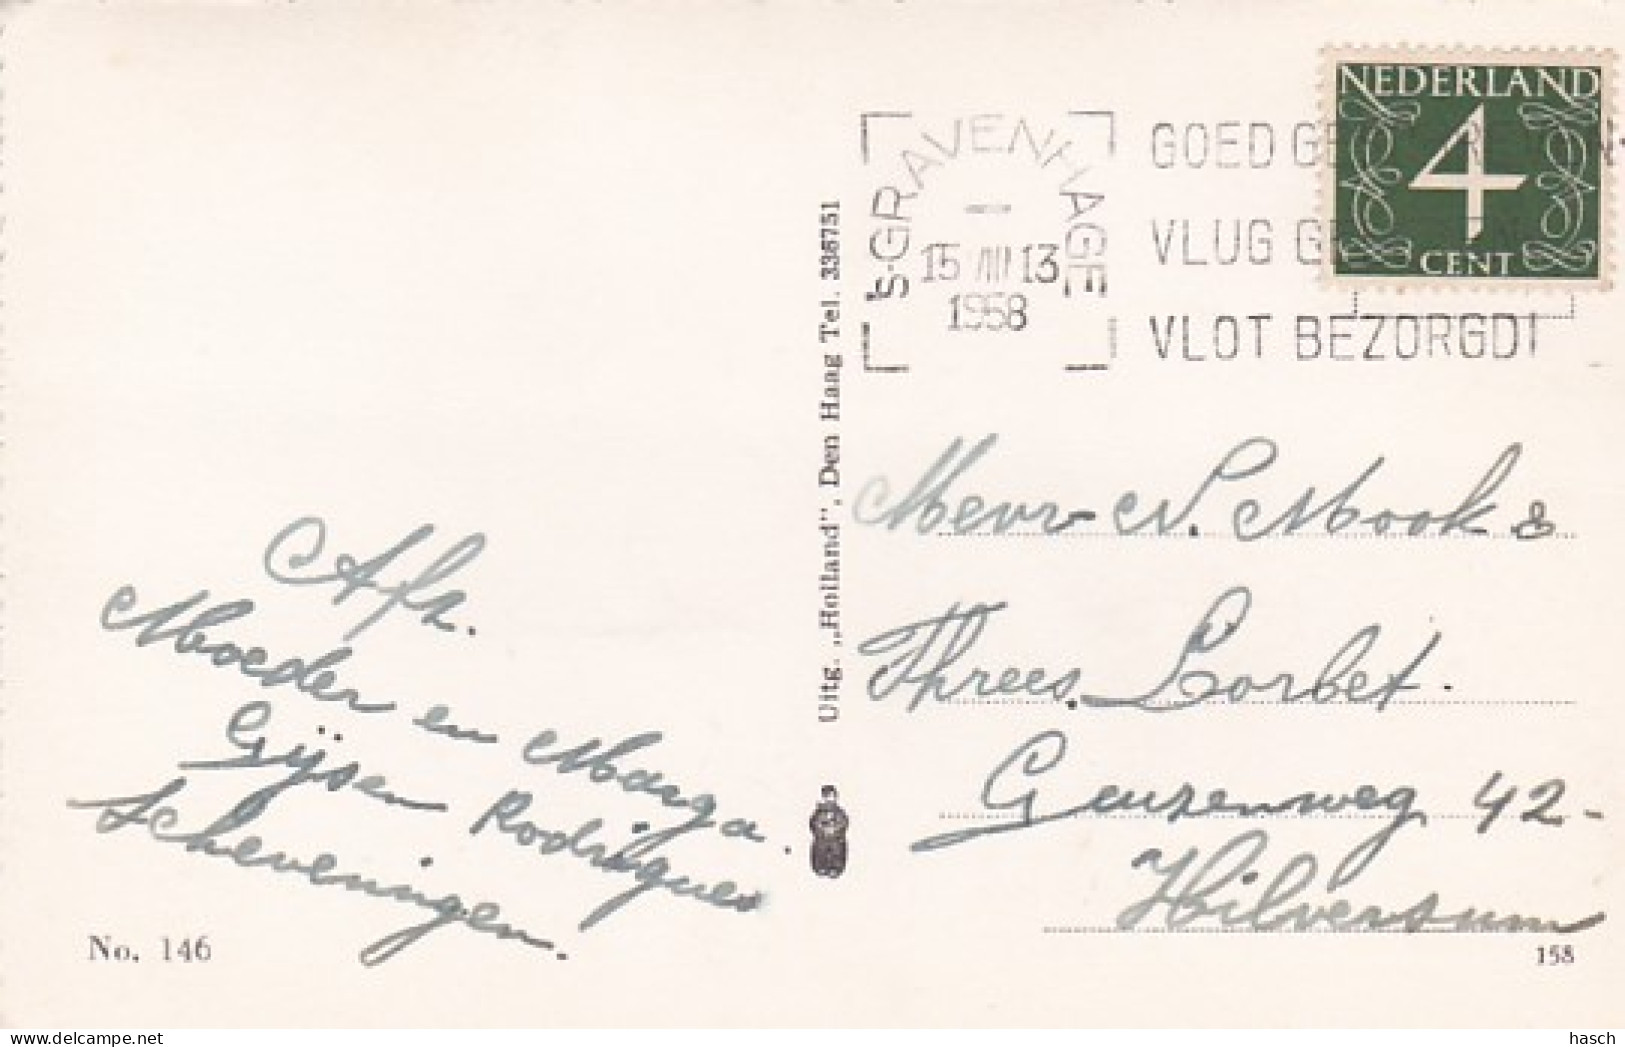 NEDERLAND
4
CENT
's-GRAVENHAGE
15 VIII 13
1958
GOED
VLUG
VLOT BEZORGD!
Uitg. „Holland", Den Haag Tel. 336751
Afz.
Moeder en Marga
Gijsen Rodrigues
Scheveningen.
Mevr N. Mook &
Threes. Lorbet.
Geuzenweg 42-
Hilversum
No. 146
158
hasch
delcampe.net